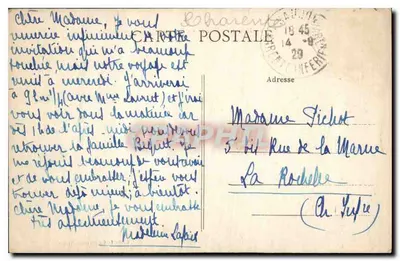 Charente
CARTE POSTALE
Chère Madame, je vous
remercie infiniment de votre
invitation qui m'a beaucoup
touchée mais notre voyage est
remis à mercredi. J'arriverai
à 9h (avec Mme) et j'irai
vous voir dans la matinée car
dès 1h de l'après midi
retrouver la famille
réjouis beaucoup de vous revoir
et de vous embrasser, j'espère vous
trouver déjà mieux; à bientôt.
Chère Madame, je vous embrasse
très affectueusement.
Madeleine
18 45
14 -8
29
INFERIEURE
Adresse
Madame Pichot
5 bis Rue de la Marne
La Rochelle
(Ch. Infre)